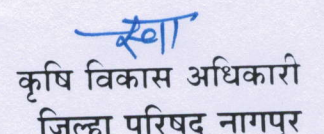 कृषि विकास अधिकारी
जिल्हा परिषद नागपुर